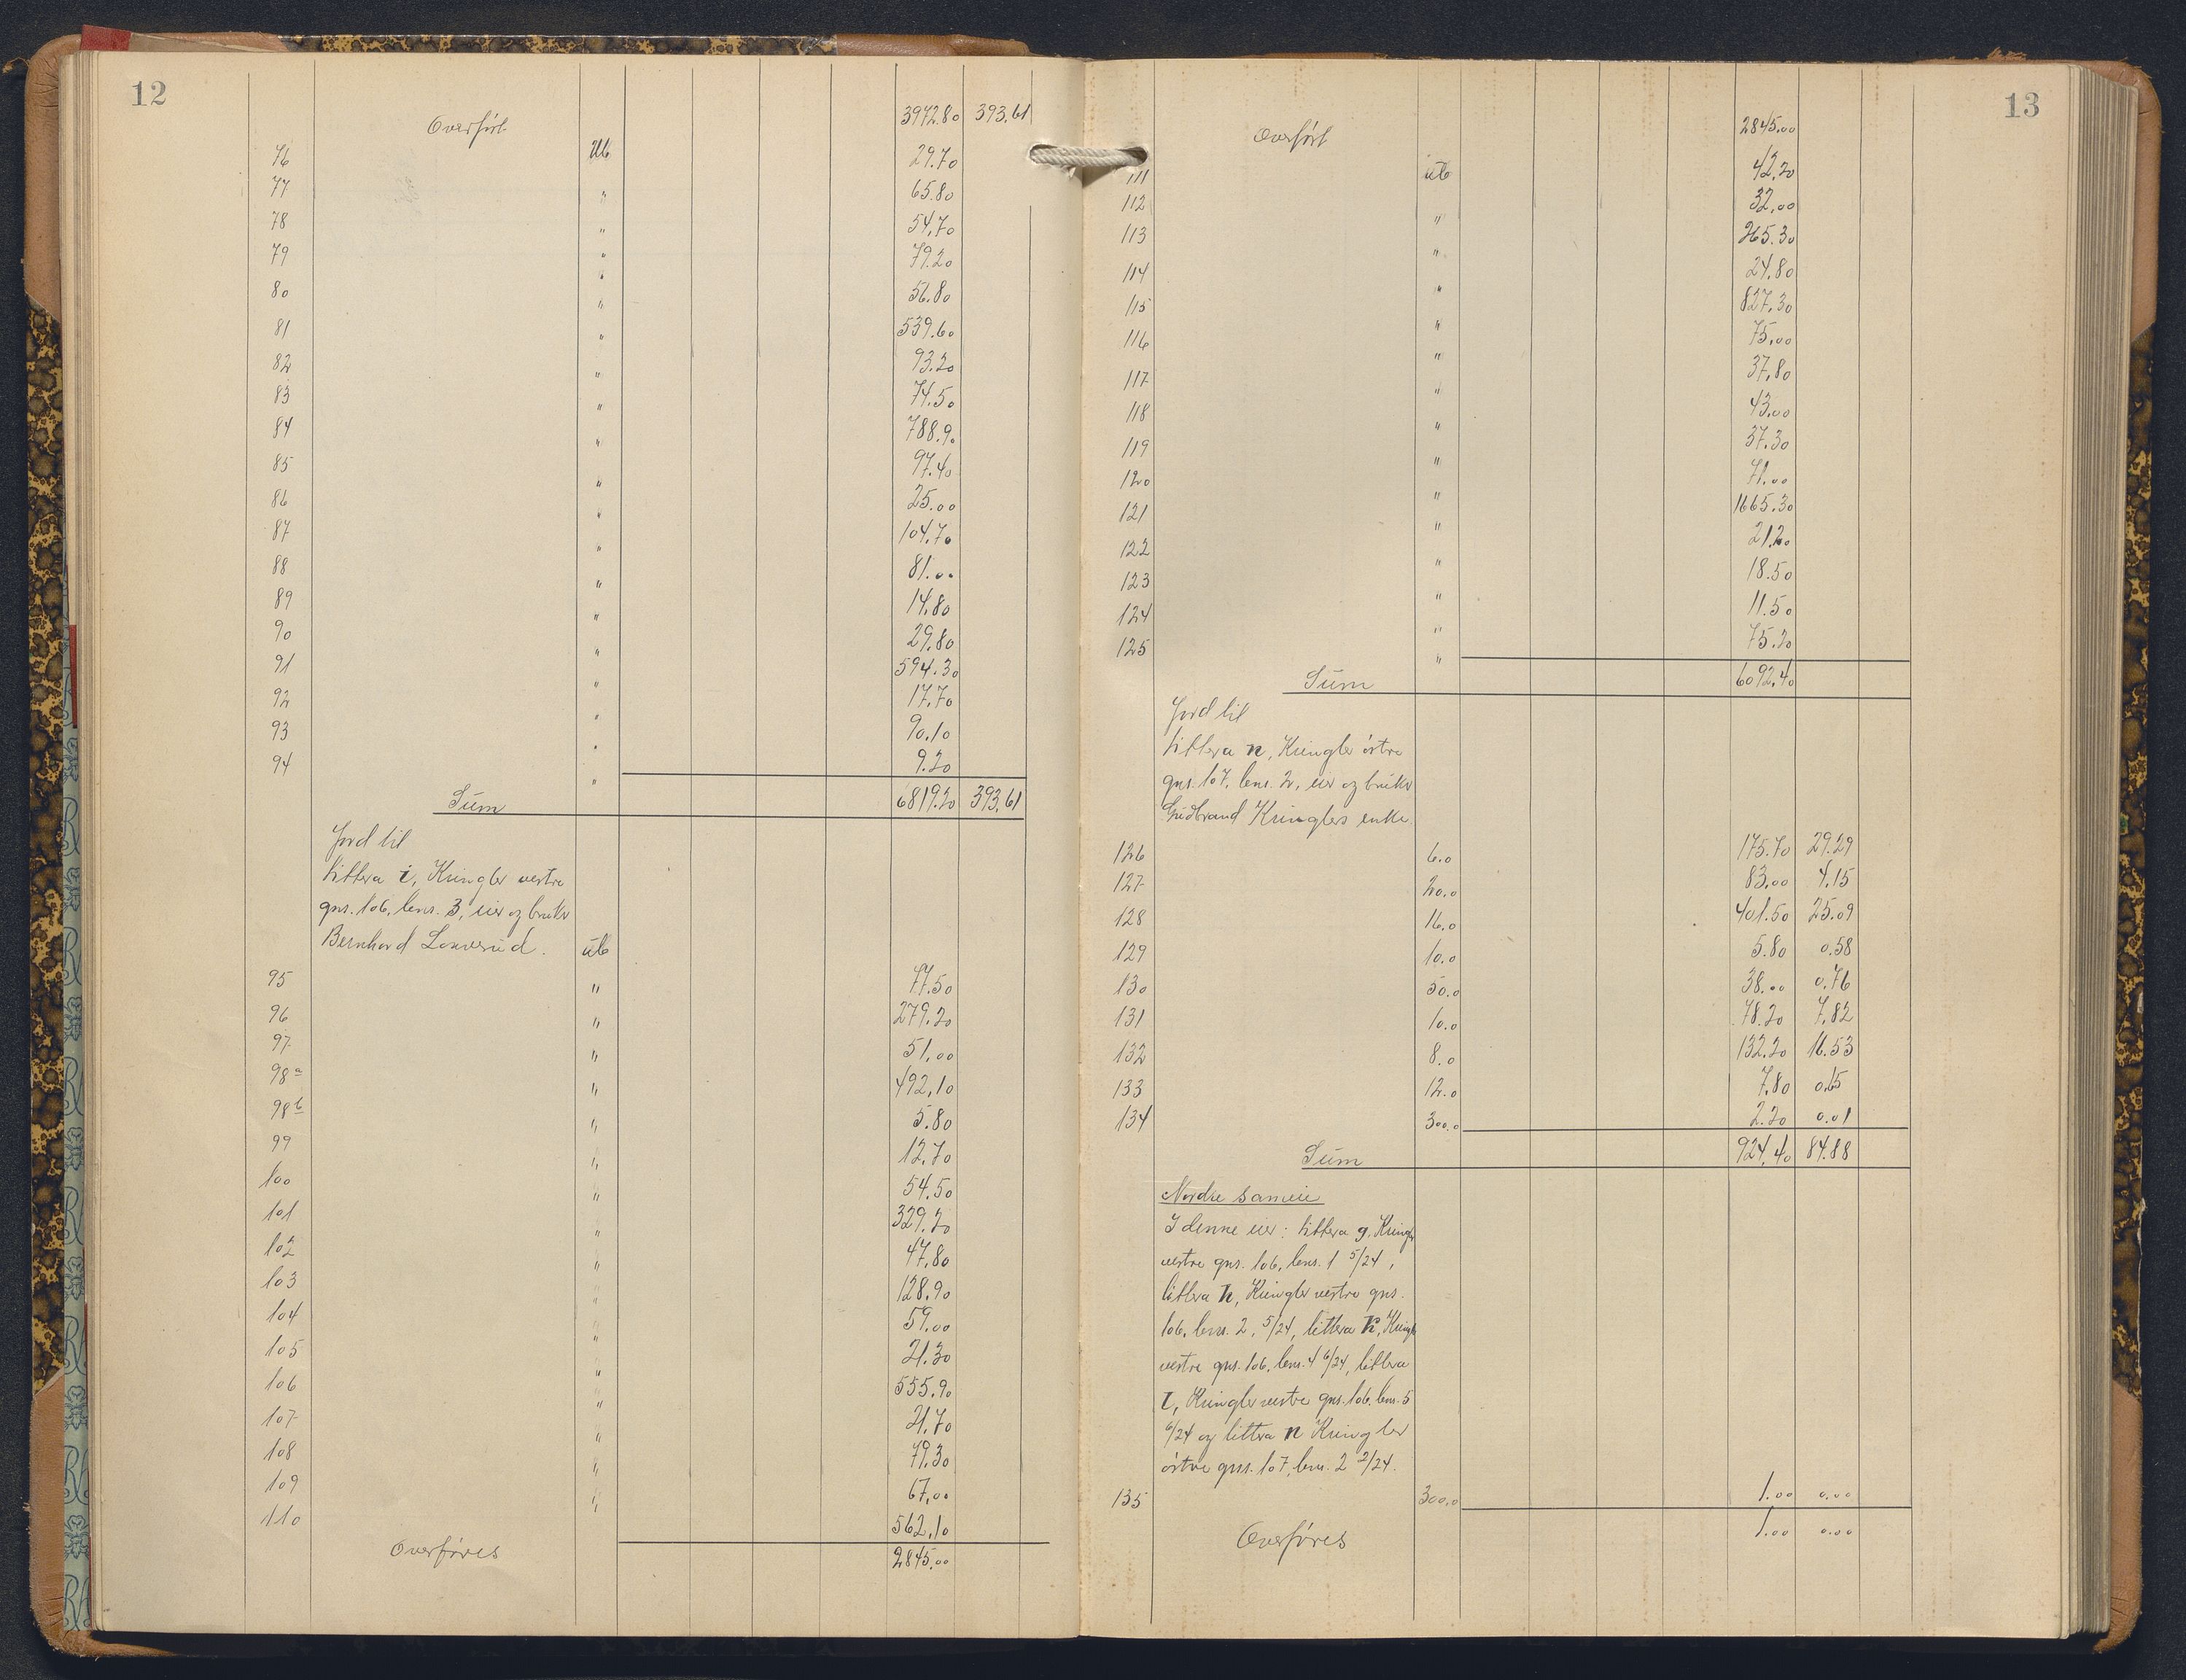 12
Overført 3972.80 393.61
76 Ub 29.70
77 " 65.80
78 " 54.70
79 " 79.20
80 " 56.80
81 " 539.60
82 " 93.20
83 " 74.50
84 " 788.90
85 " 97.40
86 " 25.00
87 " 104.70
88 " 81.00
89 " 14.80
90 " 29.80
91 " 594.30
92 " 17.70
93 " 90.10
94 " 9.20
Sum 6819.20 393.61
Jord til
littera i, Kringler vestre
gns. 106, brns. 3, eier og bruker
Bernhard Lonverud. ub
95 " 77.50
96 " 279.20
97 " 51.00
98a " 492.10
98b " 5.80
99 " 12.70
100 " 54.50
101 " 329.20
102 " 47.80
103 " 128.90
104 " 59.00
105 " 21.30
106 " 555.90
107 " 21.70
108 " 79.30
109 " 67.00
110 562.10
Overføres 2845.00
13
Overført 2845.00
111 ub 42.20
112 " 32.00
113 " 265.30
114 " 24.80
115 " 827.30
116 " 75.00
117 " 37.80
118 " 43.00
119 " 37.30
120 " 71.00
121 " 1665.30
122 " 21.20
123 " 18.50
124 " 11.50
125 " 75.20
Sum 6092.40
Jord til
littera n, Kringler østre
gns. 107, brns. 2, eier og bruker
Gudbrand Kringlers enke.
126 6.0 175.70 29.29
127 20.0 83.00 4.15
128 16.0 401.50 25.09
129 10.0 5.80 0.58
130 50.0 38.00 0.76
131 10.0 78.20 7.82
132 8.0 132.20 16.53
133 12.0 7.80 0.65
134 300.0 2.20 0.01
Sum 924.40 84.88
Nordre sameie
I denne eier: littera g, Kringler
vestre gns. 106, brns. 1 5/24,
littera h, Kringler vestre gns.
106, brns. 2, 5/24, littera k, Kringler
vestre gns. 106, brns. 4 6/24, littera
l, Kringler vestre gns. 106, brns. 5
6/24 og littera n Kringler
østre gns. 107, brns. 2 2/24.
135 300.0 1.00 0.00
Overføres 1.00 0.00